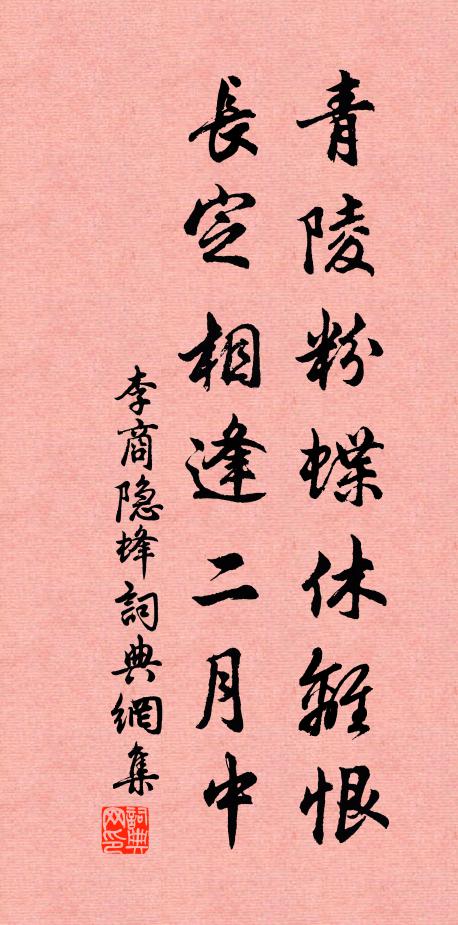 青陵粉蝶休離恨
長定相逢二月中
李商隐蜂詞典網集
詞典网印